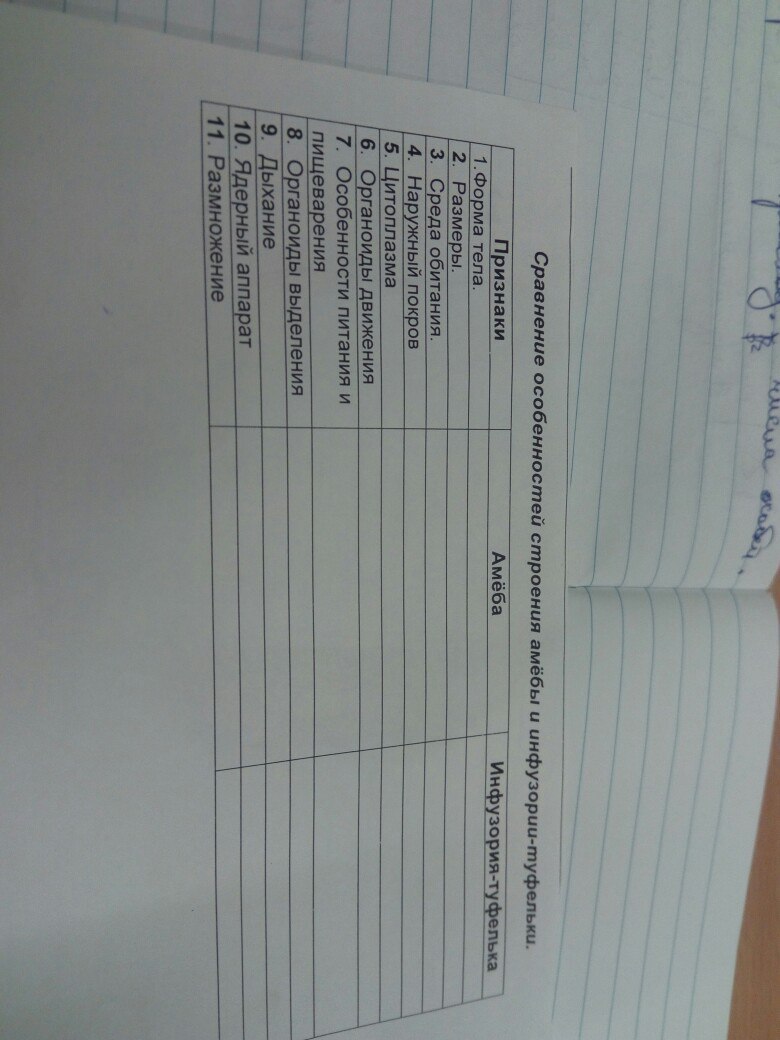 Сравнение особенностей строения амёбы и инфузории-туфельки.
Признаки Амёба Инфузория-туфелька
1.Форма тела.
2. Размеры.
3. Среда обитания.
4. Наружный покров
5. Цитоплазма
6. Органоиды движения
7. Особенности питания и
пищеварения
8. Органоиды выделения
9. Дыхание
10. Ядерный аппарат
11. Размножение